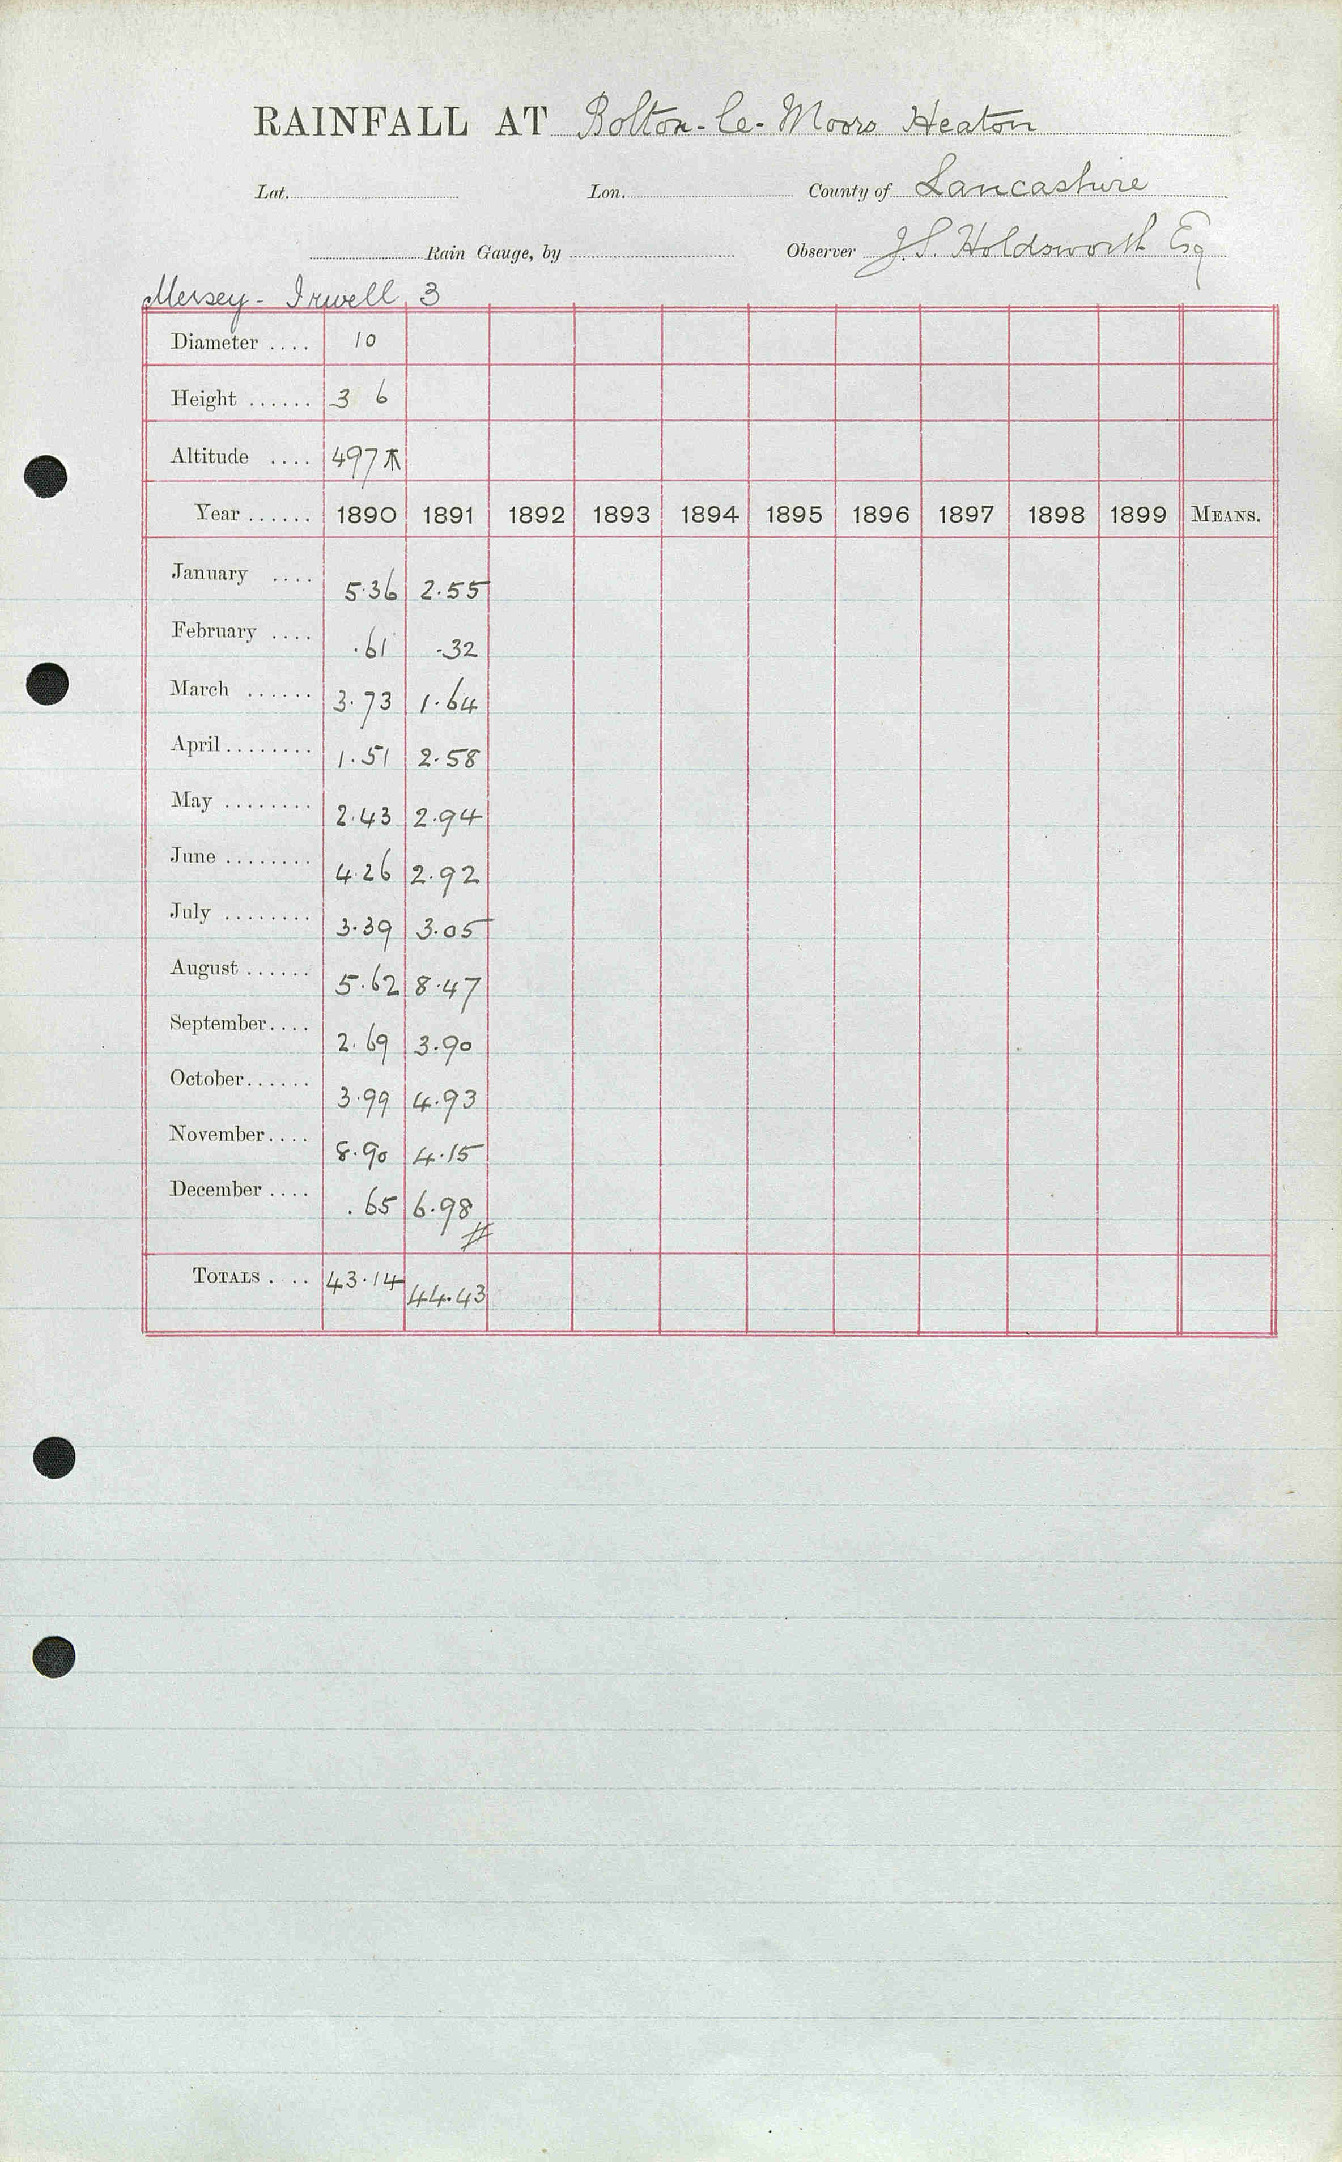 RAINFALL AT Bolton-le-Moors Heaton
Lat. Lon. County of Lancashire
Rain Gauge, by Observer J.S. Holdsworth Esq
Mersey - Irwell 3
Diameter .... 10
Height ...... 3 6
Altitude .... 497
Year ...... 1890 1891 1892 1893 1894 1895 1896 1897 1898 1899 MEANS.
January .... 5.36 2.55
February .... .61 .32
March ...... 3.73 1.64
April ........ 1.51 2.58
May ........ 2.43 2.94
June ........ 4.26 2.92
July ........ 3.39 3.05
August ...... 5.62 8.47
September.... 2.69 3.90
October...... 3.99 4.93
November.... 8.90 4.15
December .... .65 6.98
TOTALS . .. 43.14 44.43